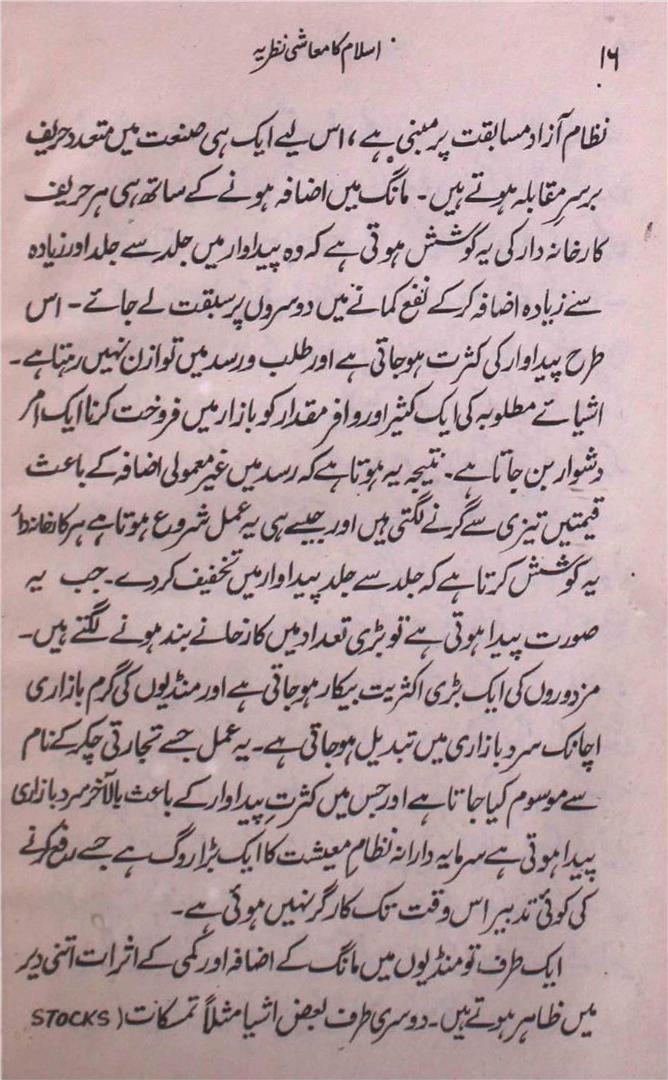 ۱۶
اسلام کا معاشی نظریہ
نظام آزاد مسابقت پر مبنی ہے، اس لیے ایک ہی صنعت میں متعدد حریف
برسرِ مقابلہ ہوتے ہیں۔ مانگ میں اضافہ ہونے کے ساتھ ہی ہر حریف
کارخانہ دار کی یہ کوشش ہوتی ہے کہ وہ پیداوار میں جلد سے جلد اور زیادہ
سے زیادہ اضافہ کر کے نفع کمانے میں دوسروں پر سبقت لے جائے۔ اس
طرح پیداوار کی کثرت ہو جاتی ہے اور طلب و رسد میں توازن نہیں رہتا ہے۔
اشیائے مطلوبہ کی ایک کثیر اور وافر مقدار کو بازار میں فروخت کرنا ایک امر
دشوار بن جاتا ہے۔ نتیجہ یہ ہوتا ہے کہ رسد میں غیر معمولی اضافہ کے باعث
قیمتیں تیزی سے گرنے لگتی ہیں اور جیسے ہی یہ عمل شروع ہوتا ہے ہر کارخانہ دار
یہ کوشش کرتا ہے کہ جلد سے جلد پیداوار میں تخفیف کر دے۔ جب یہ
صورت پیدا ہوتی ہے تو بڑی تعداد میں کارخانے بند ہونے لگتے ہیں۔
مزدوروں کی ایک بڑی اکثریت بیکار ہو جاتی ہے اور منڈیوں کی گرم بازاری
اچانک سرد بازاری میں تبدیل ہو جاتی ہے۔ یہ عمل جسے تجارتی چکر کے نام
سے موسوم کیا جاتا ہے اور جس میں کثرتِ پیداوار کے باعث بالآخر سرد بازاری
پیدا ہوتی ہے سرمایہ دارانہ نظامِ معیشت کا ایک بڑا روگ ہے جسے رفع کرنے
کی کوئی تدبیر اس وقت تک کارگر نہیں ہوئی ہے۔
ایک طرف تو منڈیوں میں مانگ کے اضافہ اور کمی کے اثرات اتنی دیر
میں ظاہر ہوتے ہیں۔ دوسری طرف بعض اشیا مثلاً تمسکات (STOCKS